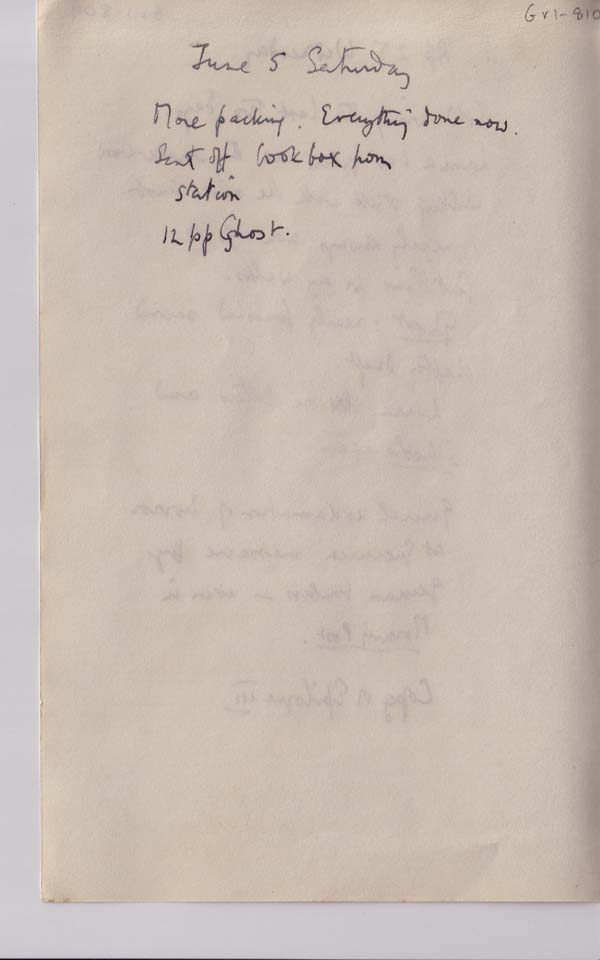 Gr1-810
June 5 Saturday
More packing. Everything done now.
Sent off book box from
station
12 pp Ghost.